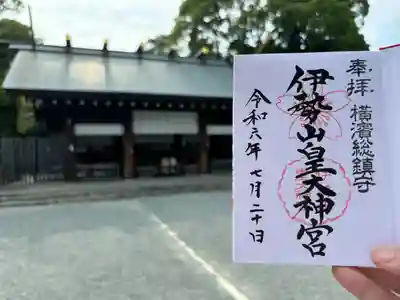 奉拝 横濱総鎮守
伊勢山皇大神宮
令和六年 七月二十日